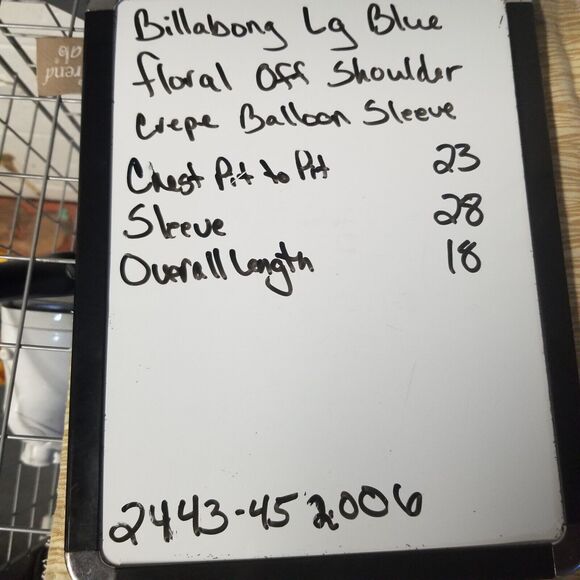 Billabong Lg Blue
floral Off Shoulder
Crepe Balloon Sleeve
Chest Pit to Pit 23
Sleeve 28
Overall Length 18
2443-45 2006